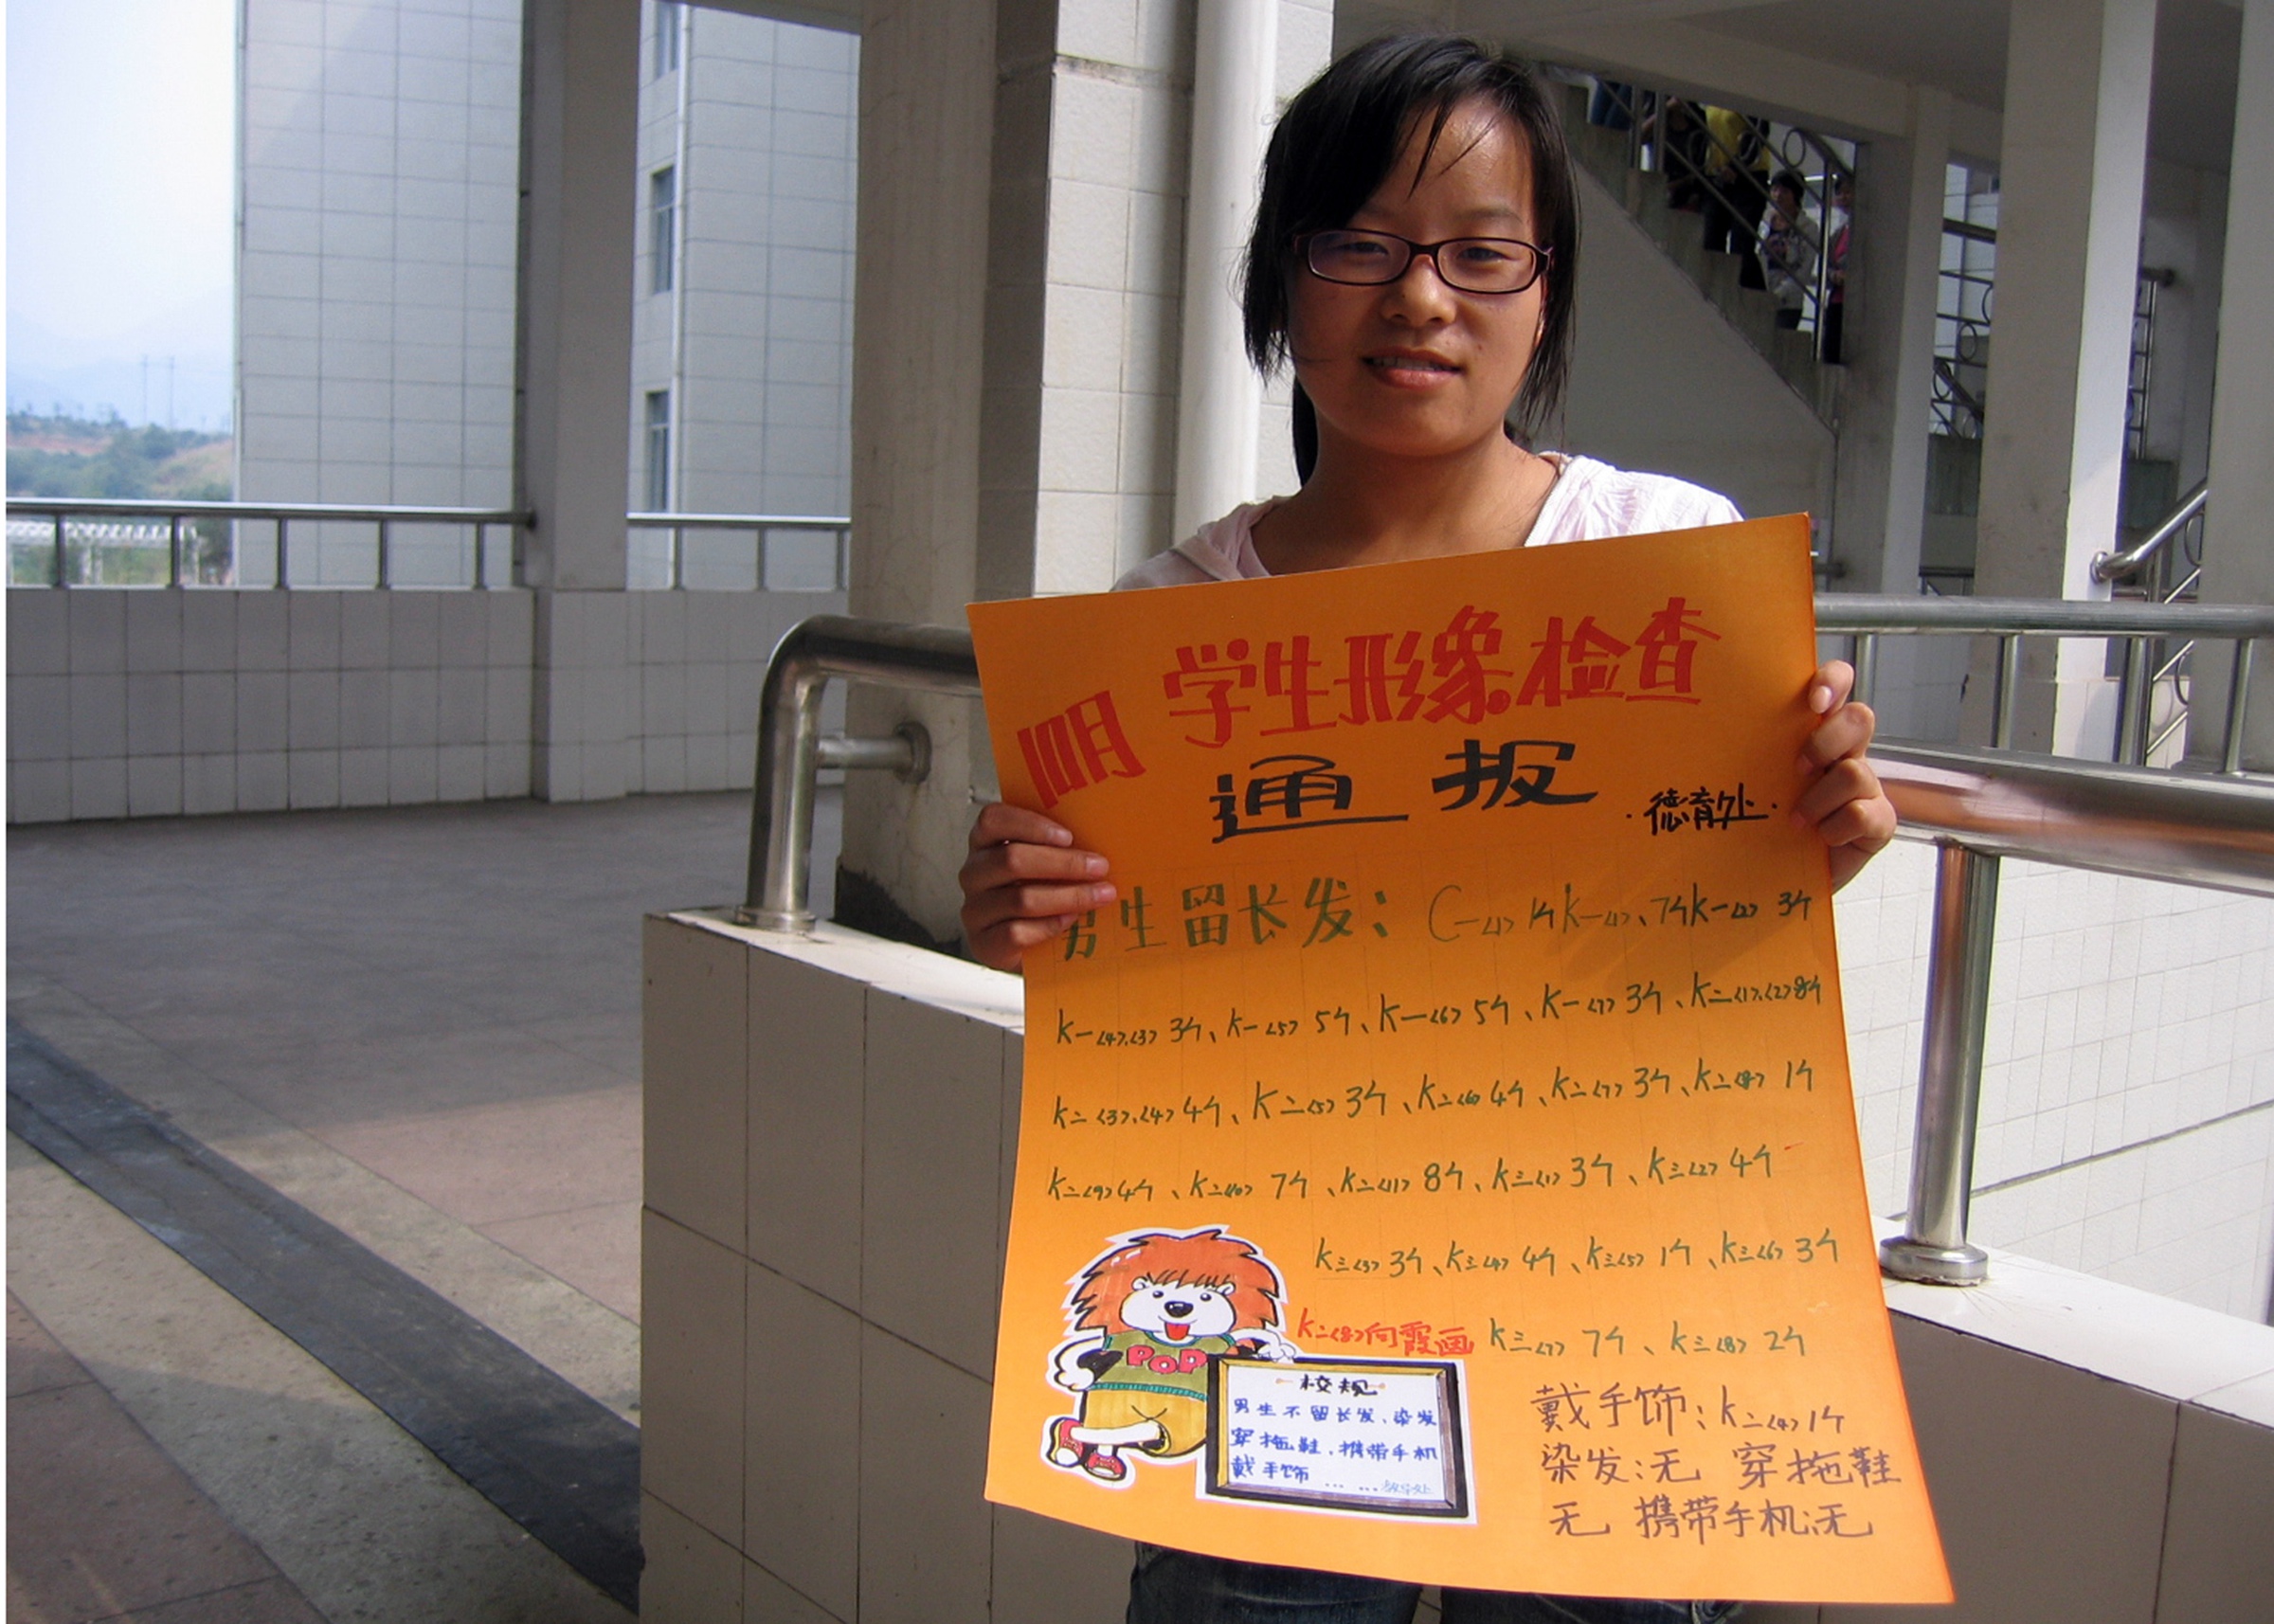 10月 学生形象检查
通报
·德育处·
男生留长发：C一<1> 1个 K一<1>、7个 K一<2> 3个
K一<4>.<3> 3个、K一<5> 5个、K一<6> 5个、K一<7> 3个、K二<1>.<2> 8个
K二<3>.<4> 4个、K二<5> 3个、K二<6> 4个、K二<7> 3个、K二<8> 1个
K二<9> 4个、K二<10> 7个、K二<11> 8个、K三<1> 3个、K三<2> 4个
K三<3> 3个、K三<4> 4个、K三<5> 1个、K三<6> 3个
K二<8>向霞画 K三<7> 7个、K三<8> 2个
POP
校规
男生不留长发、染发
穿拖鞋、携带手机
戴手饰 …… 教导处
戴手饰：K二<4> 1个
染发：无 穿拖鞋
无 携带手机：无